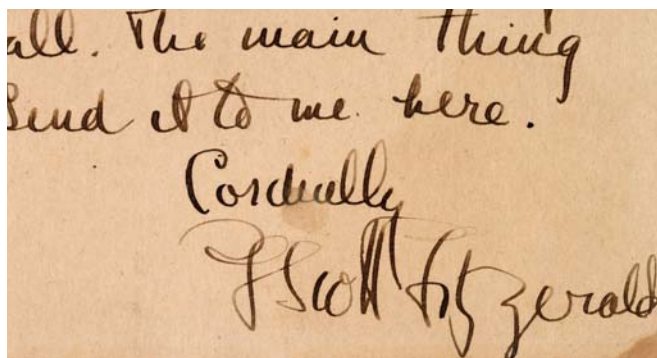 all. The main thing
send it to me here.
Cordially
F Scott Fitzgerald